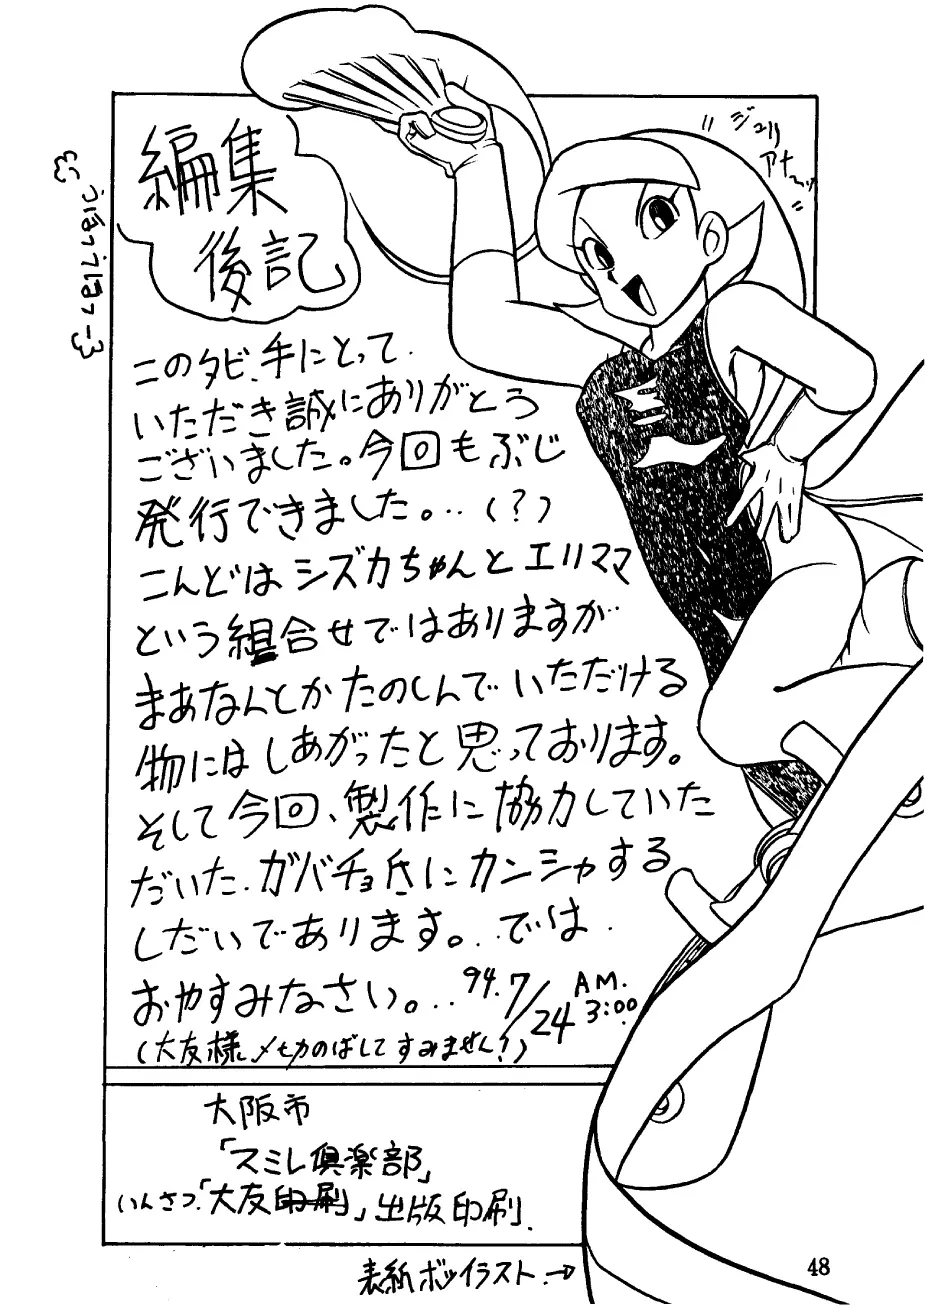 編集
後記
このタビ、手にとって
いただき誠にありがとう
ございました。今回もぶじ
発行できました。‥(?)
こんどはシズカちゃんとエリママ
という組合せではありますが
まあなんとかたのしんでいただける
物にはしあがったと思っております。
そして今回、製作に協力していた
だいた、ガバチョ氏にカンシャする
しだいであります。‥では
おやすみなさい。‥94.7/24 AM.3:00
(大友様、〆切のばしてすみません!)
大阪市
「スミレ倶楽部」
いんさつ.「大友印刷」出版印刷.
表紙ボツイラスト.→
48